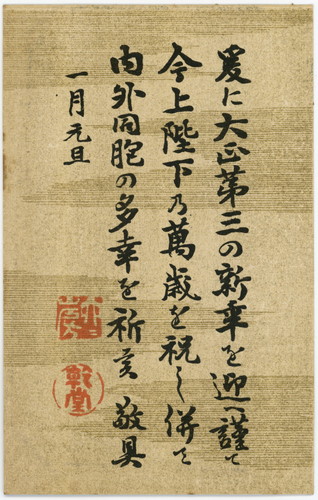 爰に大正第三の新年を迎へ謹て
今上陛下乃萬歳を祝し併て
内外同胞の多幸を祈 敬具
一月元旦
乾堂